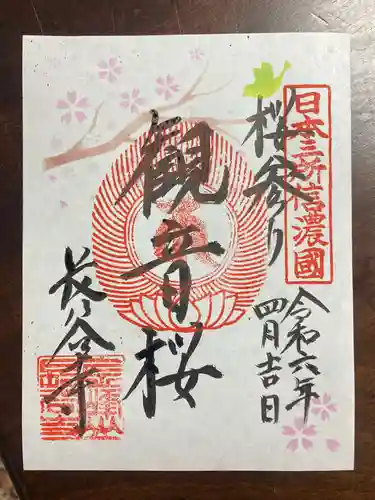 日本三所信濃國
桜参り
令和六年
四月吉日
観音桜
長谷寺